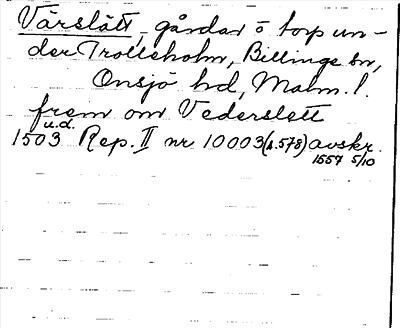 Värslätt, gårdar o torp un-
der Trolleholm, Billinge sn,
Onsjö hd, Malm. l.
frem om Vederslett
u.d.
1503 Rep. II nr 10003 (s. 578) avskr.
1557 5/10